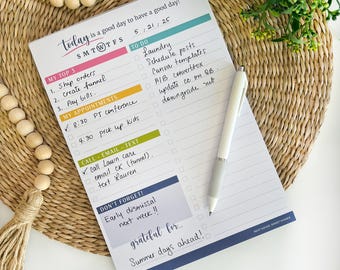 today is a good day to have a good day!
S M T W T F S
5 / 21 / 25
MY TOP 3
1. Ship orders
2. create funnel
3. Pay bills
MY APPOINTMENTS
✓ 8:30 PT conference
4:30 pick up kids
CALL - EMAIL - TEXT
✓ call Lawn care
email CK (funnel)
text Lauren
DON'T FORGET!
Early dismissal
next week!!
grateful for...
Summer days ahead!
TO DO
Laundry
Schedule posts
Canva templates
update